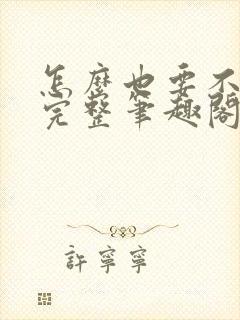 怎麼也要不
完整筆趣閣
許寧寧